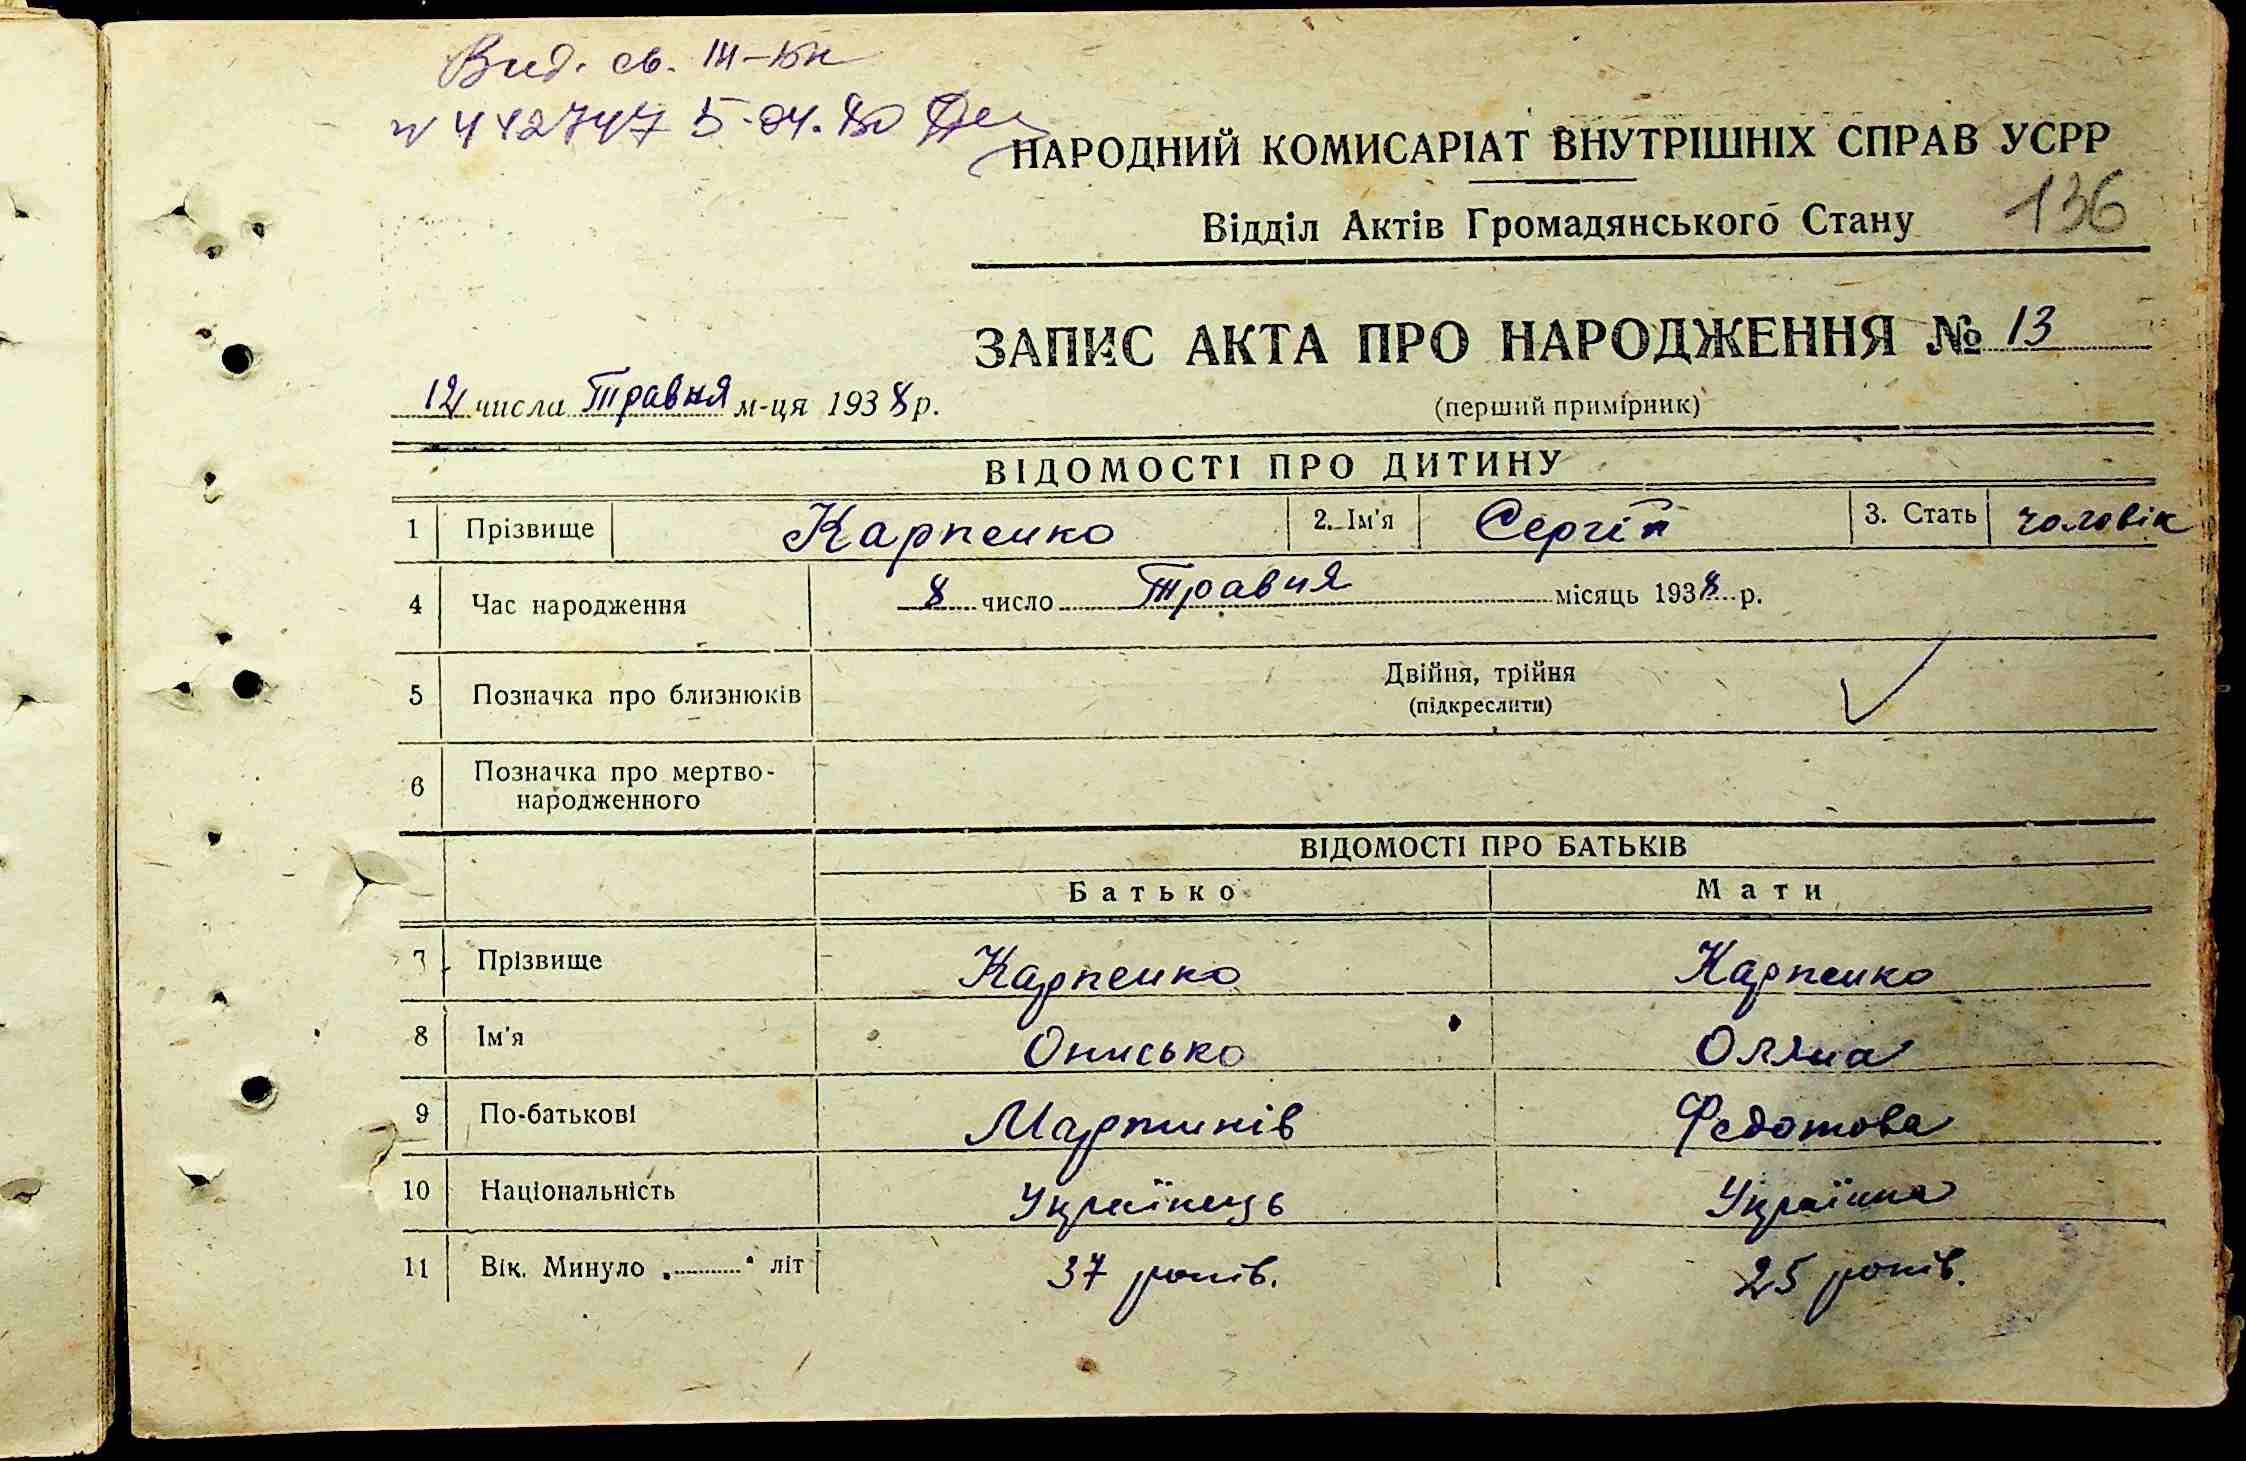 Вид. св. III-БК
N 442747 5.04.80
НАРОДНИЙ КОМИСАРІАТ ВНУТРІШНІХ СПРАВ УСРР
Відділ Актів Громадянського Стану 136
ЗАПИС АКТА ПРО НАРОДЖЕННЯ № 13
12 числа Травня м-ця 1938 р. (перший примірник)
ВІДОМОСТІ ПРО ДИТИНУ
1 Прізвище Карпенко 2. Ім'я Сергій 3. Стать чоловік
4 Час народження 8 число Травня місяць 1938 р.
5 Позначка про близнюків Двійня, трійня
(підкреслити)
6 Позначка про мертво-
народженного
ВІДОМОСТІ ПРО БАТЬКІВ
Батько Мати
7 Прізвище Карпенко Карпенко
8 Ім'я Онисько Оляна
9 По-батькові Мартинів Федотова
10 Національність Українець Українка
11 Вік. Минуло „..........“ літ 37 років. 25 років.